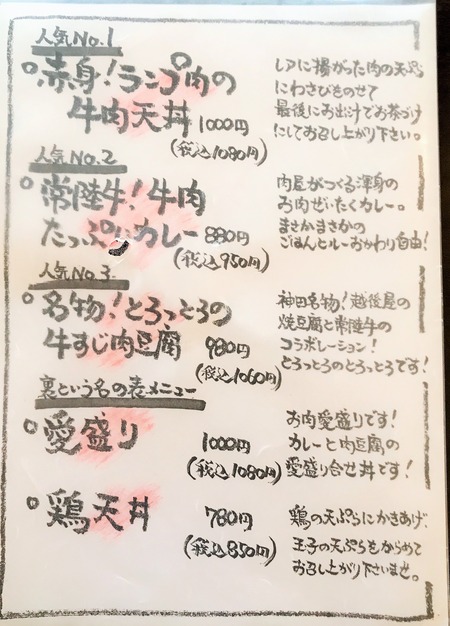 人気No.1
赤身！ランプ肉の
牛肉天丼 1000円
(税込1080円)
レアに揚がった肉の天ぷら
にわさびをのせて
最後にお出汁でお茶づけ
にしてお召し上がり下さい。
人気No.2
常陸牛！牛肉
たっぷりカレー 880円
(税込950円)
肉屋がつくる渾身の
お肉ぜいたくカレー。
まさかまさかの
ごはんとルーおかわり自由！
人気No.3
名物！とろっとろの
牛すじ肉豆腐 980円
(税込1060円)
神田名物！越後屋の
焼豆腐と常陸牛の
コラボレーション！
とろっとろのとろっとろです！
裏という名の表メニュー
愛盛り 1000円
(税込1080円)
お肉愛盛りです！
カレーと肉豆腐の
愛盛り合せ丼です！
鶏天丼 780円
(税込850円)
鶏の天ぷらにかきあげ。
玉子の天ぷらをからめて
お召し上がり下さいませ。